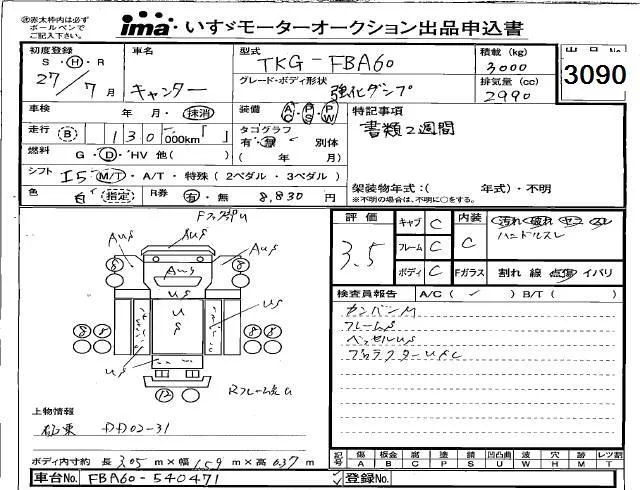 ㊟赤太枠内は必ず
ボールペンで
ご記入下さい。
ima いすゞモーターオークション出品申込書
初度登録
S・H・R
27/7月
車名
キャンター
型式
TKG-FBA60
グレード・ボディ形状
強化ダンプ
積載 (kg)
3000
排気量 (cc)
2990
出品No.
3090
車検
年 月・抹消
装備
A/C P/S P/W
特記事項
書類2週間
走行 B 130,000km「 」
タコグラフ
有・無 別体
( 年 月)
燃料 G・D・HV 他( )
シフト I5 M/T・A/T・特殊 (2ペダル・3ペダル)
色 白 指定
R券 有・無 8,830 円
架装物年式:( 年式)・不明
※不明の場合は、不明に○をする。
AuS
AuS
AuS
US
US
US
US
8
8
8
8
8
8
12
RフレームC
上物情報
極東 DD02-31
ボディ内寸約 長 3.05 m×幅 1.59 m×高 0.37 m
車台No. FBA60-540471
評価
3.5
キャブ C
フレーム C
ボディ C
内装 C
汚れ・破れ・コゲ・スレ
ハンドルスレ
Fガラス 割れ 線 点傷 イバリ
検査員報告 A/C (✓) B/T ( )
カンバンM
フレームS
ベッセルUS
記号
傷 A
板金 B
腐 C
塗 P
錆 S
凹凸曲 U
波 W
穴 H
跡 M
レツ割 T
登録No.